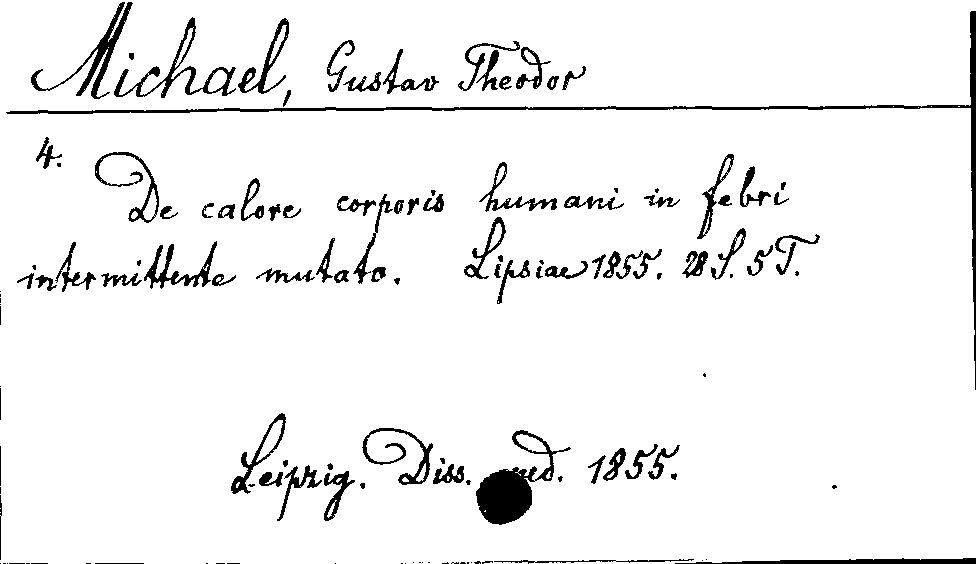 Michael, Gustav Theodor
4.
De calore corporis humani in febri
intermittente mutato. Lipsiae 1855. 28 S. 5 T.
Leipzig. Diss. med. 1855.